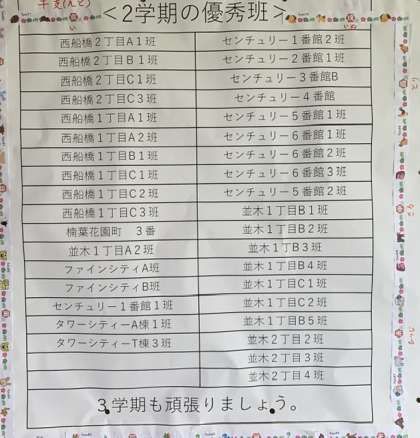 干支(えと)
<2学期の優秀班>
西船橋2丁目A1班 センチュリー1番館2班
西船橋2丁目B1班 センチュリー2番館1班
西船橋2丁目C1班 センチュリー3番館B
西船橋2丁目C3班 センチュリー4番館
西船橋1丁目A1班 センチュリー5番館1班
西船橋1丁目A2班 センチュリー6番館1班
西船橋1丁目B1班 センチュリー6番館2班
西船橋1丁目C1班 センチュリー6番館3班
西船橋1丁目C2班 センチュリー5番館2班
西船橋1丁目C3班 並木1丁目B1班
楠葉花園町 3番 並木1丁目B2班
並木1丁目A2班 並木1丁B3班
ファインシティA班 並木1丁目B4班
ファインシティB班 並木1丁目C1班
センチュリー1番館1班 並木1丁目C2班
タワーシティーA棟1班 並木1丁目B5班
タワーシティーT棟3班 並木2丁目2班
並木2丁目3班
並木2丁目4班
3学期も頑張りましょう。